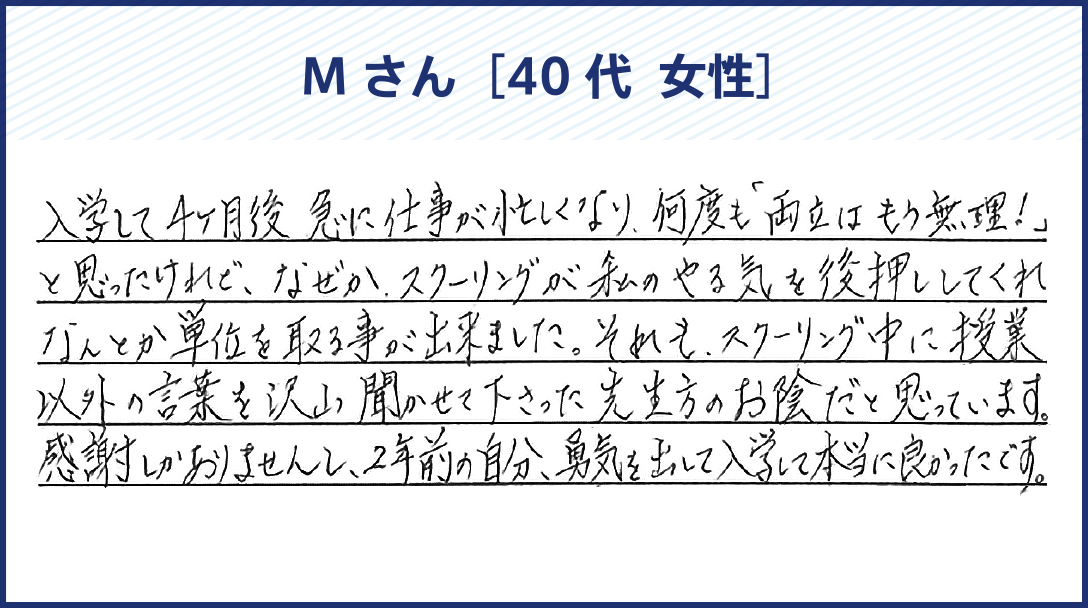 Mさん［40代 女性］
入学して4ヶ月後 急に仕事が忙しくなり、何度も「両立はもう無理！」
と思ったけれど、なぜか、スクーリングが私のやる気を後押ししてくれ
なんとか単位を取る事が出来ました。それも、スクーリング中に授業
以外の言葉を沢山聞かせて下さった先生方のお陰だと思っています。
感謝しかありませんし、2年前の自分、勇気を出して入学して本当に良かったです。